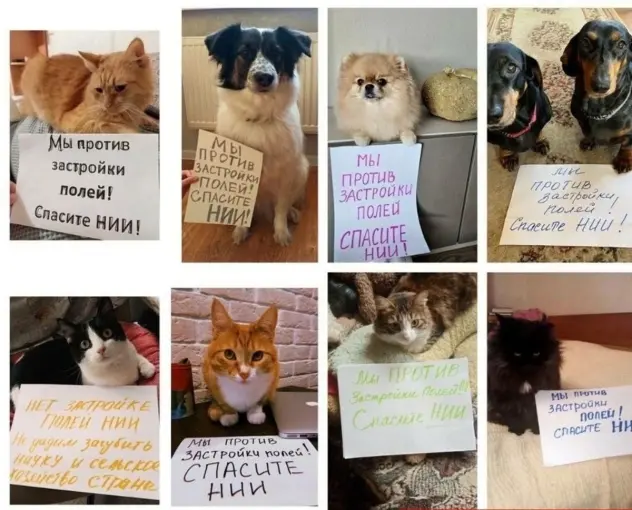 Мы против
застройки
полей!
Спасите НИИ!
МЫ
ПРОТИВ
ЗАСТРОЙКИ
ПОЛЕЙ!
СПАСИТЕ
НИИ!
МЫ
ПРОТИВ
ЗАСТРОЙКИ
ПОЛЕЙ
СПАСИТЕ
НИИ!
МЫ
ПРОТИВ
Застройки
полей!
Спасите НИИ!
НЕТ ЗАСТРОЙКЕ
ПОЛЕЙ НИИ
Не дадим загубить
науку и сельское
хозяйство страны
МЫ ПРОТИВ
ЗАСТРОЙКИ полей!
СПАСИТЕ
НИИ
Мы ПРОТИВ
Застройки Полей!!
Спасите НИИ
МЫ ПРОТИВ
ЗАСТРОЙКИ
ПОЛЕЙ!
СПАСИТЕ НИ